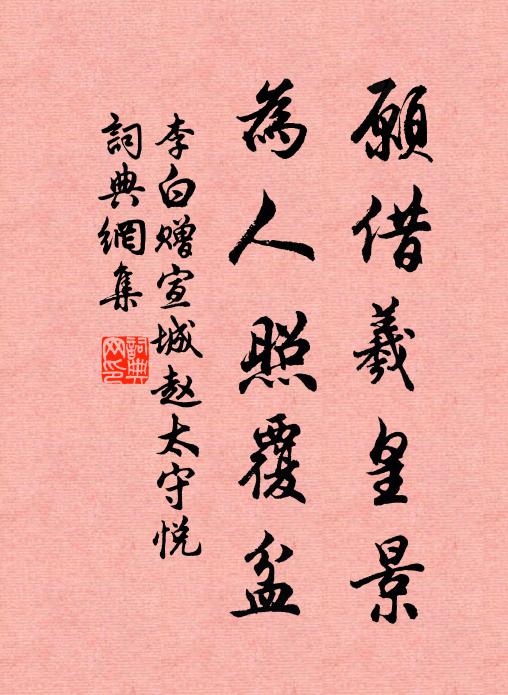 願借羲皇景
為人照覆盆
李白赠宣城赵太守悦
詞典網集
詞典網印